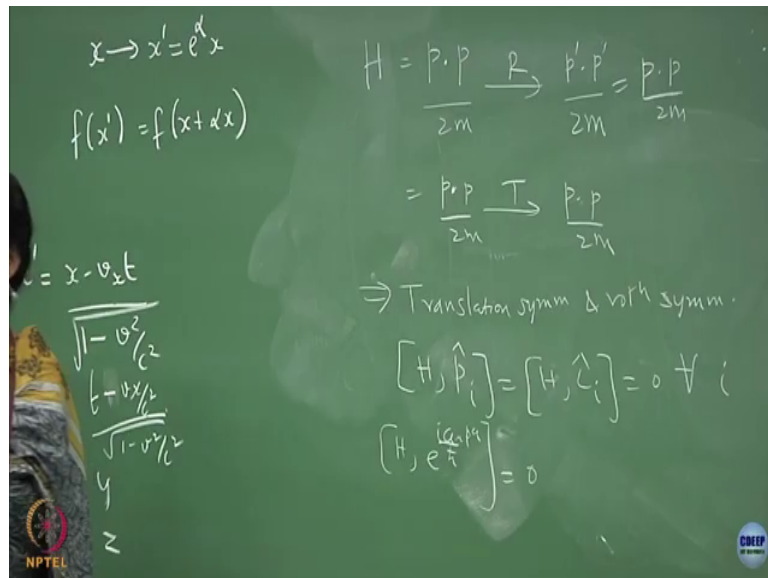 x → x' = e^α x
f(x') = f(x + αx)
' = x - v_x t
√(1 - v²/c²)
t - vx/c²
√(1 - v²/c²)
y
z
H = p·p/2m —R→ p'·p'/2m = p·p/2m
= p·p/2m —T→ p·p/2m
⇒ Translation symm & rotn symm.
[H, p̂_i] = [H, L̂_i] = 0 ∀ i
= 0
NPTEL
CDEEP